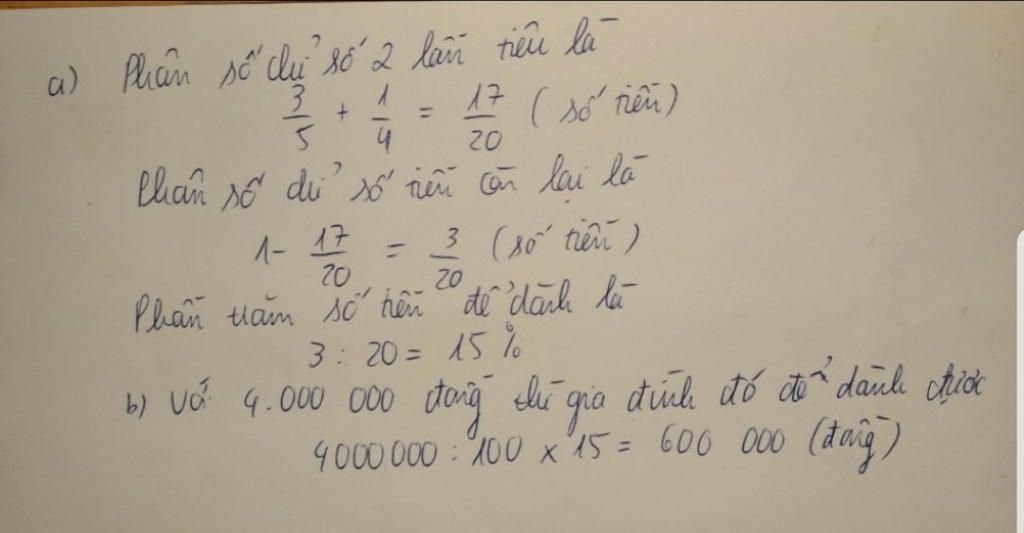 a) Phân số chỉ số 2 lần tiêu là
3/5 + 1/4 = 17/20 (số tiền)
Phân số chỉ số tiền còn lại là
1 - 17/20 = 3/20 (số tiền)
Phần trăm số tiền để dành là
3 : 20 = 15 %
b) Với 4.000 000 đồng thì gia đình đó để dành được
4000000 : 100 x 15 = 600 000 (đồng)